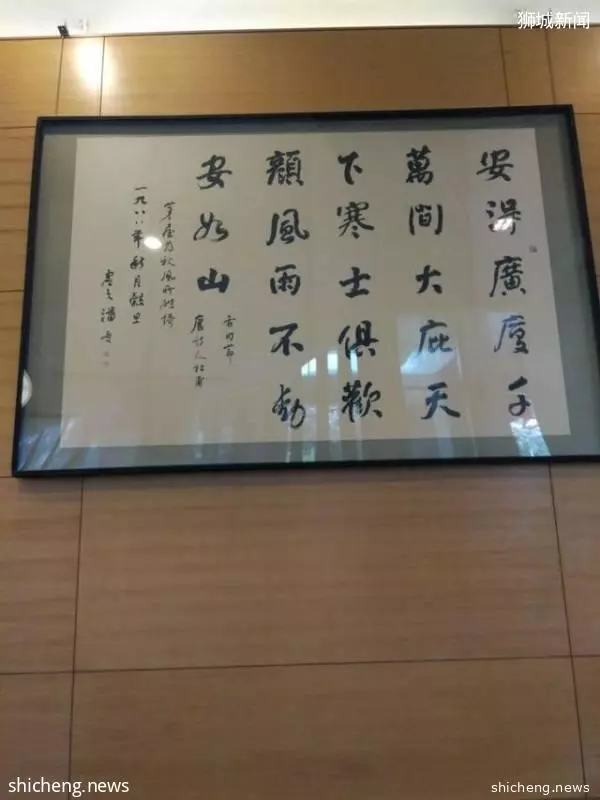 狮城新闻
安得廣廈千
萬間大庇天
下寒士俱歡
顏風雨不動
安如山
右句節
唐詩人杜甫
茅屋為秋風所破
一九八八年秋月穀旦
虛之潘受
shicheng.news
shicheng.news